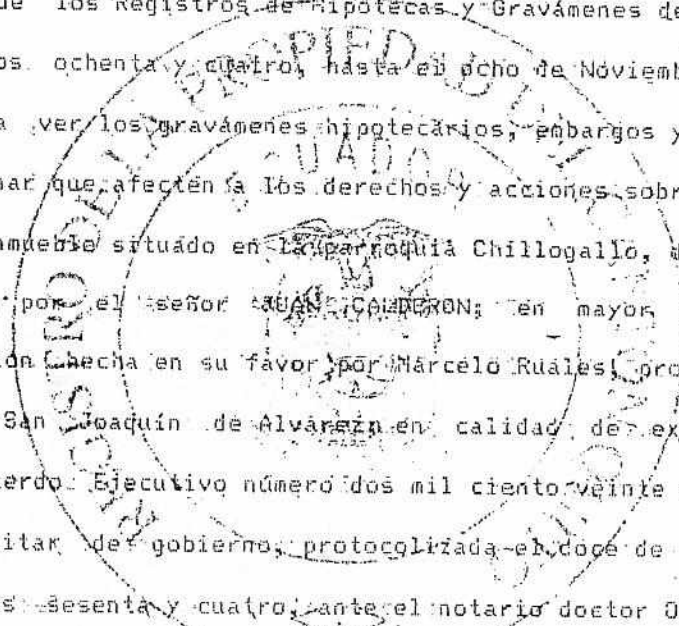 de los Registros de Hipotecas y Gravámenes de
os ochenta y cuatro, hasta el ocho de Noviemb
a ver los gravámenes hipotecarios, embargos y
nar que afecten a los derechos y acciones sobr
nmueble situado en la parroquia Chillogallo,
por el señor JUAN CALDERON; en mayor
ón hecha en su favor por Marcelo Ruales,
San Joaquín de Alvarez en calidad de ex
erdo Ejecutivo número dos mil ciento veinte
itar de gobierno, protocolizada el doce de
s sesenta y cuatro, ante el notario doctor O
REGISTRO DE LA PROPIEDAD
ECUADOR
QUITO